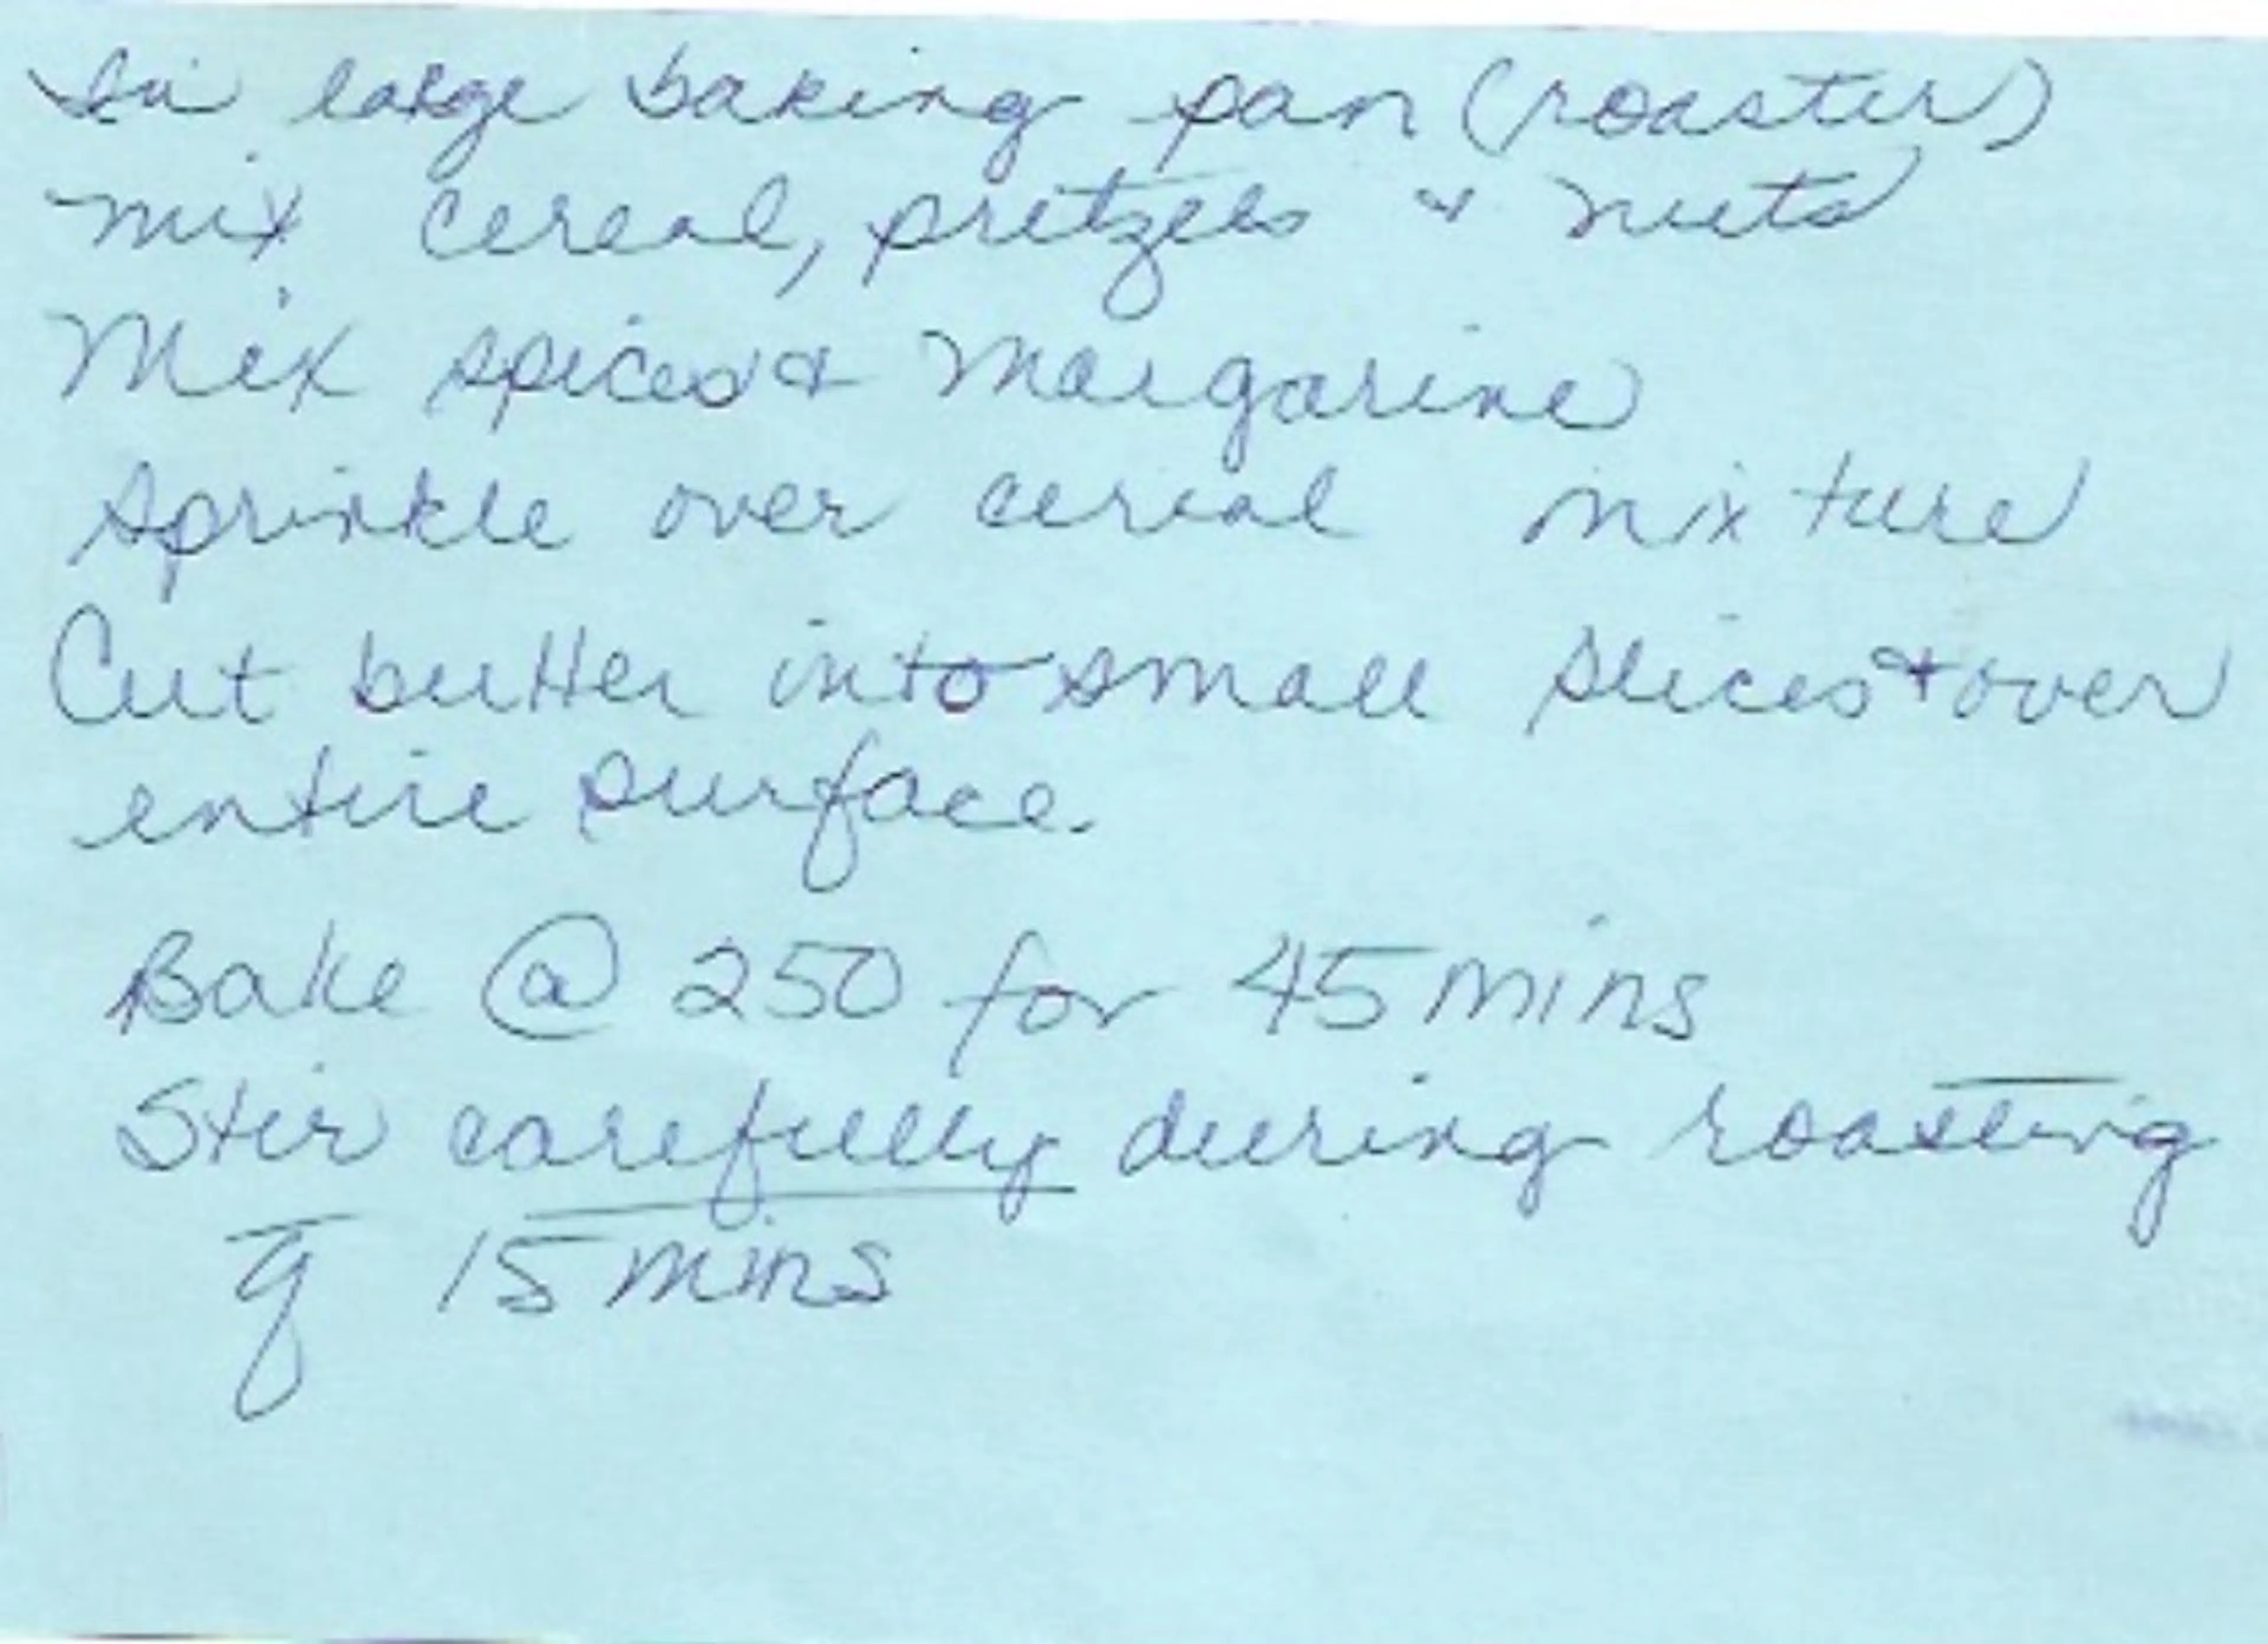 In large baking pan (roaster)
mix cereal, pretzels & nuts
Mix spices & Margarine
sprinkle over cereal mixture
Cut butter into small slices & over
entire surface.
Bake @ 250 for 45 mins
Stir carefully during roasting
q̄ 15 mins